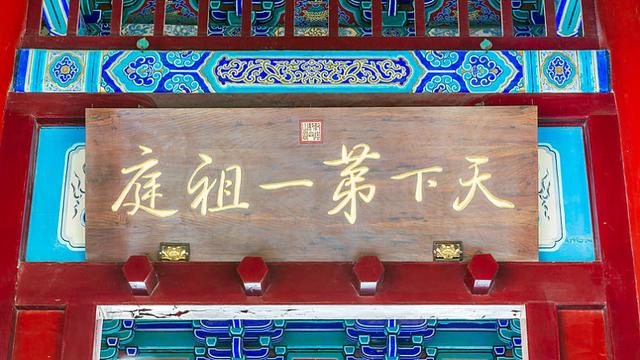 天下第一祖庭